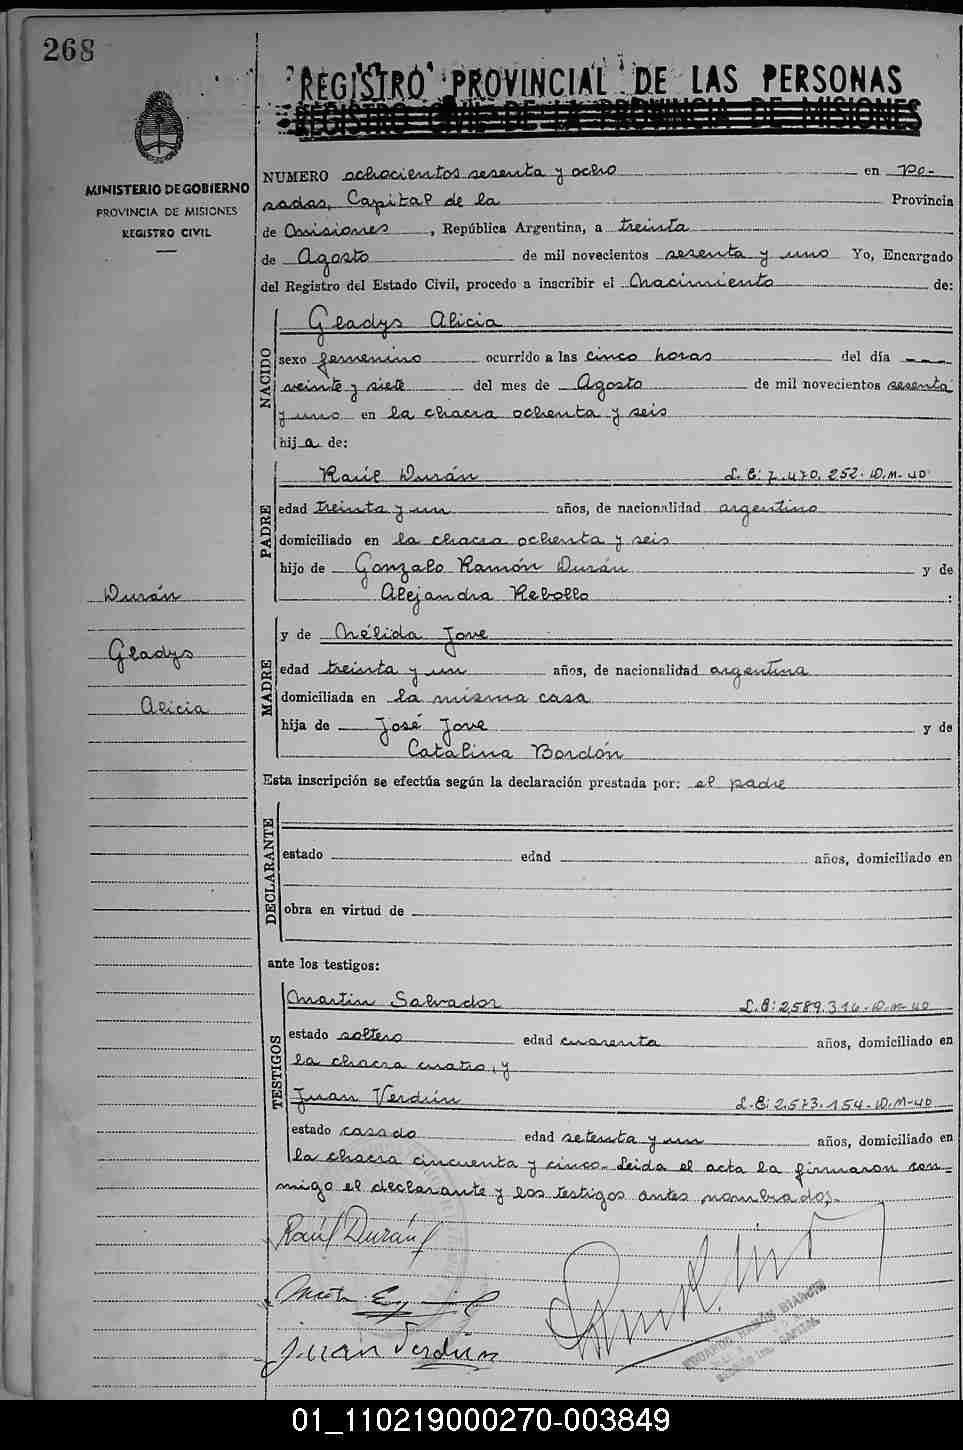 268
REGISTRO PROVINCIAL DE LAS PERSONAS
REGISTRO CIVIL DE LA PROVINCIA DE MISIONES
MINISTERIO DE GOBIERNO
PROVINCIA DE MISIONES
REGISTRO CIVIL
NUMERO ochocientos sesenta y ocho en Po-
sadas, Capital de la Provincia
de Misiones, República Argentina, a treinta
de Agosto de mil novecientos sesenta y uno Yo, Encargado
del Registro del Estado Civil, procedo a inscribir el Nacimiento de:
NACIDO
Gladys Alicia
sexo femenino ocurrido a las cinco horas del día ---
veinte y siete del mes de Agosto de mil novecientos sesenta
y uno en la chacra ochenta y seis
hija de:
PADRE
Raúl Durán L.E: 7.470.252-D.M-40
edad treinta y un años, de nacionalidad argentino
domiciliado en la chacra ochenta y seis
hijo de Gonzalo Ramón Durán y de
Alejandra Rebollo :
Durán
Gladys
Alicia
MADRE
y de Nélida Jove
edad treinta y un años, de nacionalidad argentina
domiciliada en la misma casa
hija de José Jove y de
Catalina Bordón
Esta inscripción se efectúa según la declaración prestada por: el padre
DECLARANTE
estado edad años, domiciliado en
obra en virtud de
ante los testigos:
TESTIGOS
Martin Salvador L.E: 2.589.316-D.M-40
estado soltero edad cuarenta años, domiciliado en
la chacra cuatro, y
Juan Verdún L.E: 2.573.154-D.M-40
estado casado edad setenta y un años, domiciliado en
la chacra cincuenta y cinco. Leida el acta la firmaron con-
migo el declarante y los testigos antes nombrados.-
Raúl Durán
Juan Verdún
01_110219000270-003849